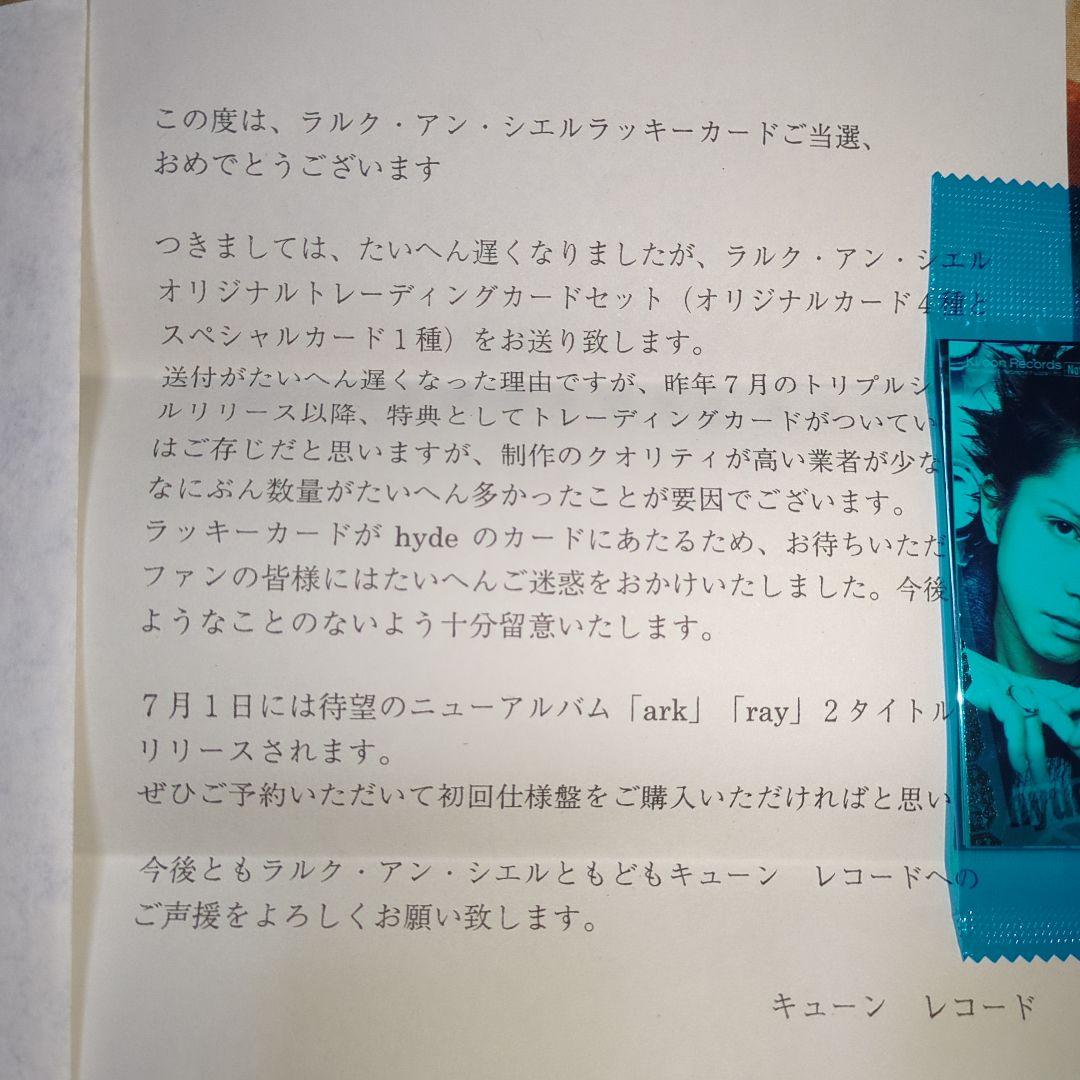 この度は、ラルク・アン・シエルラッキーカードご当選、
おめでとうございます
つきましては、たいへん遅くなりましたが、ラルク・アン・シエル
オリジナルトレーディングカードセット（オリジナルカード４種と
スペシャルカード１種）をお送り致します。
送付がたいへん遅くなった理由ですが、昨年７月のトリプルシ
ルリリース以降、特典としてトレーディングカードがついてい
はご存じだと思いますが、制作のクオリティが高い業者が少な
なにぶん数量がたいへん多かったことが要因でございます。
ラッキーカードが hyde のカードにあたるため、お待ちいただ
ファンの皆様にはたいへんご迷惑をおかけいたしました。今後
ようなことのないよう十分留意いたします。
７月１日には待望のニューアルバム「ark」「ray」２タイトル
リリースされます。
ぜひご予約いただいて初回仕様盤をご購入いただければと思い
今後ともラルク・アン・シエルともどもキューン　レコードへの
ご声援をよろしくお願い致します。
キューン　レコード
Ki/oon Records
hyde